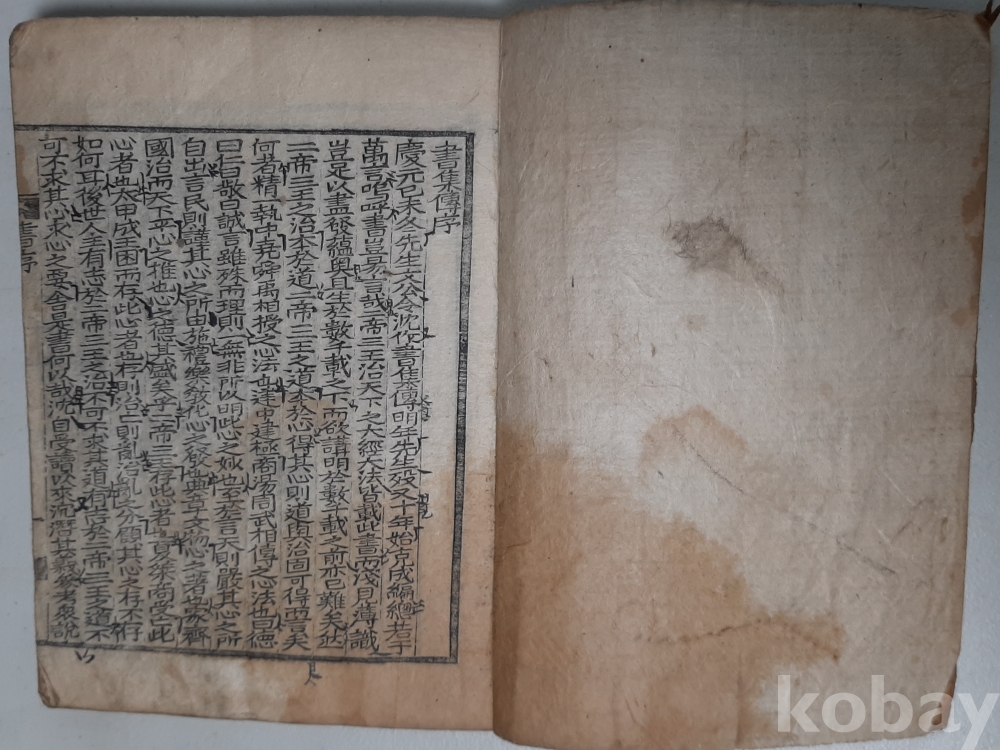 書集傳序
慶元己未冬先生文公令沈作書集傳明年先生歿又十年始克成編總若干
萬言嗚呼書豈易言哉二帝三王治天下之大經大法皆載此書而淺見薄識
豈足以盡發蘊奧且生於數千載之下而欲講明於數千載之前亦已難矣然
二帝三王之治本於道二帝三王之道本於心得其心則道與治固可得而言矣
何者精一執中堯舜禹相授之心法也建中建極商湯周武相傳之心法也曰德
曰仁曰敬曰誠言雖殊而理則一無非所以明此心之妙也至於言天則嚴其心之所
自出言民則謹其心之所由施禮樂敎化心之發也典章文物心之著也家齊
國治而天下平心之推也心之德其盛矣乎二帝三王存此心者也夏桀商受亡此
心者也太甲成王困而存此心者也存則治亡則亂治亂之分顧其心之存不存
如何耳後世人主有志於二帝三王之治不可不求其道有志於二帝三王之道不
可不求其心求心之要舍是書何以哉沈自受讀以來沉潛其義參考衆說
書序
kobay